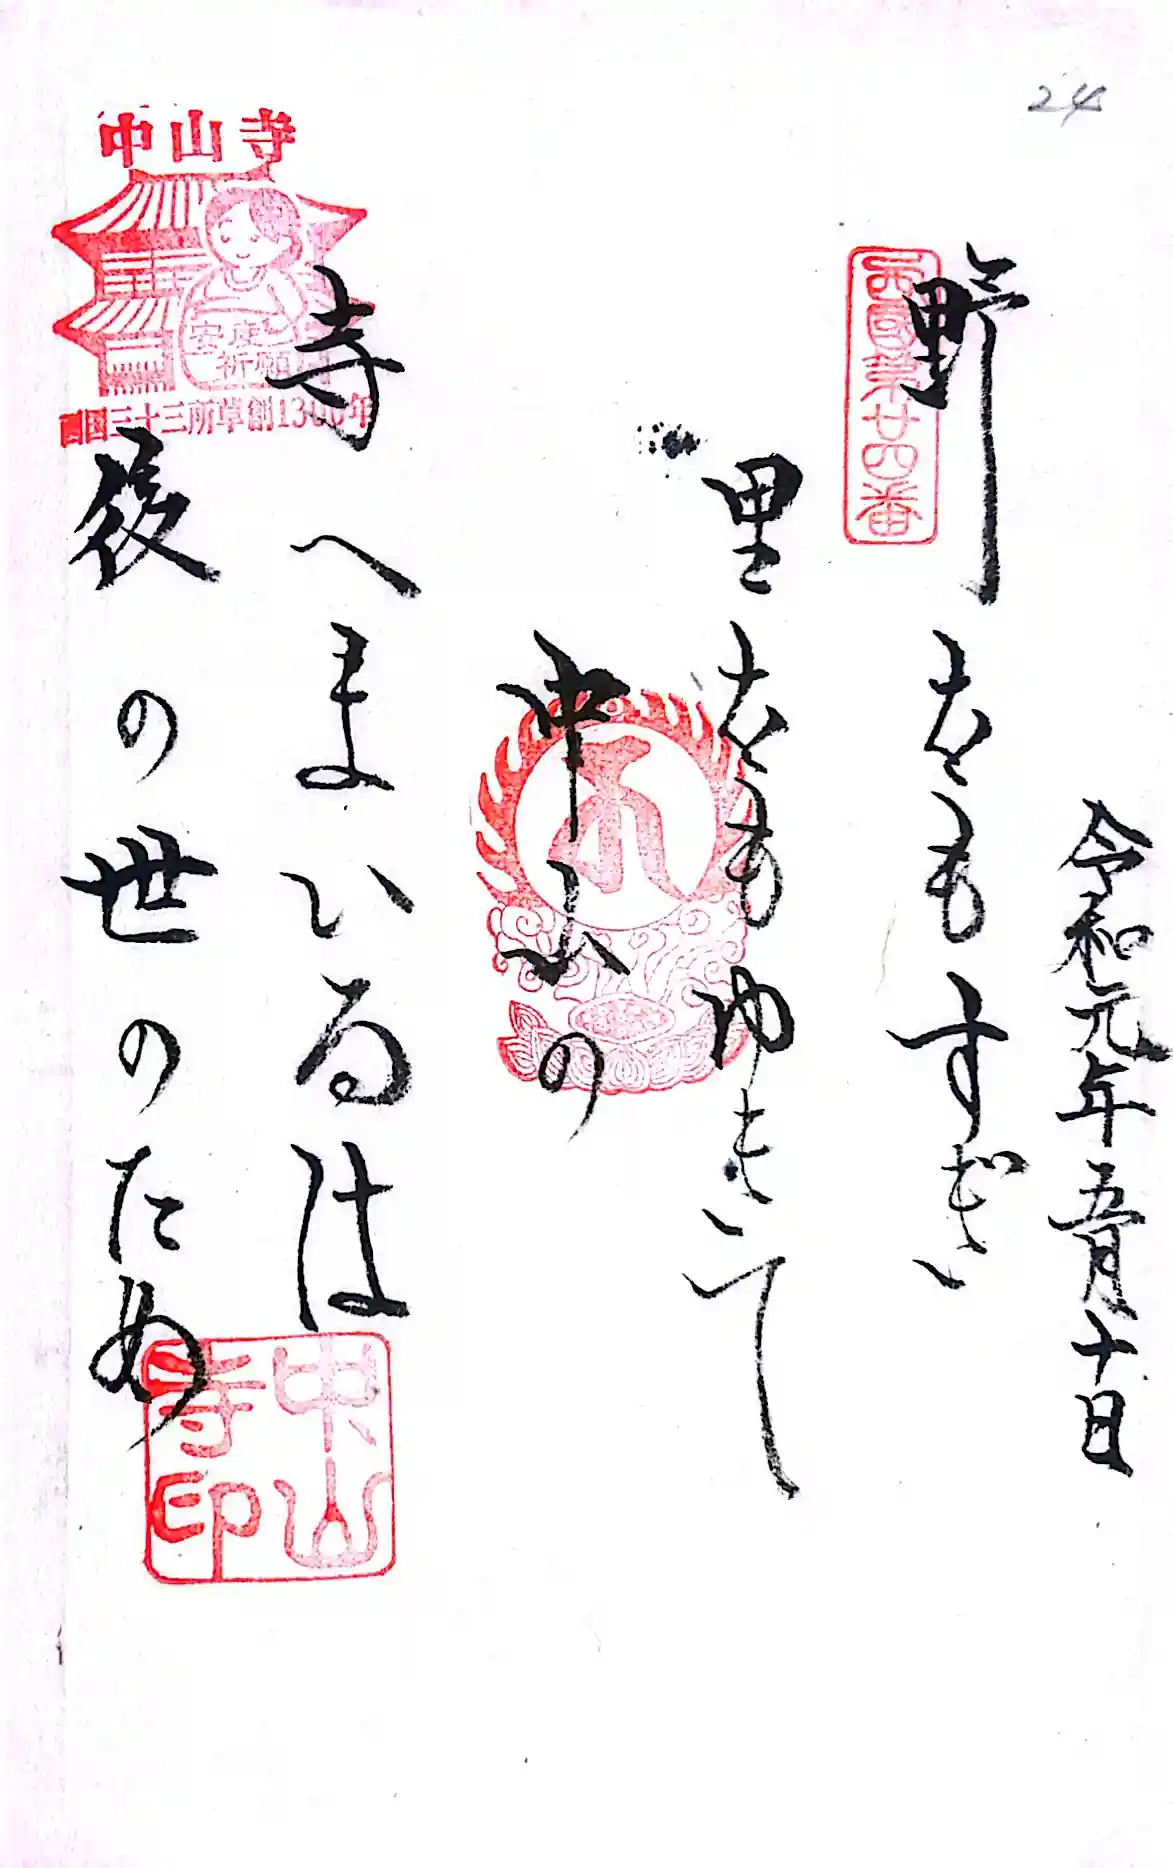 24
令和元年五月十日
野をもすぎ
里をもゆきて
中山の
寺へまいるは
後の世のため
西國第廿四番
中山寺
安産
祈願
西国三十三所草創1300年
中山
寺印